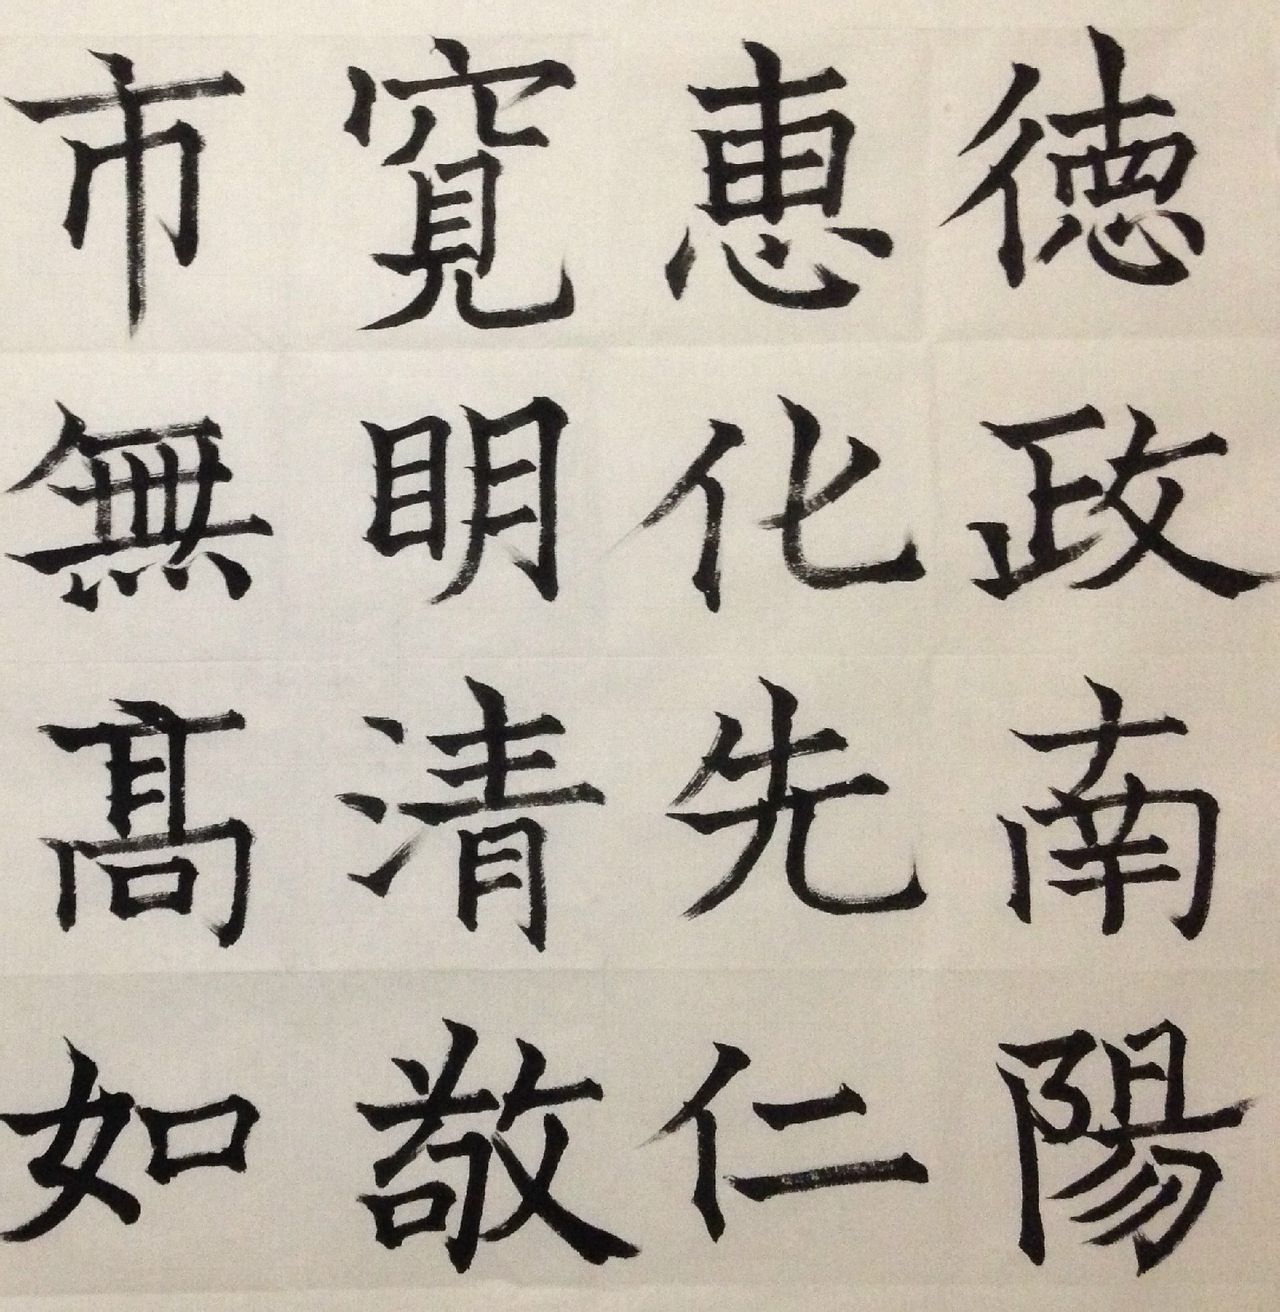 徳政南陽
恵化先仁
寛明清敬
市無髙如